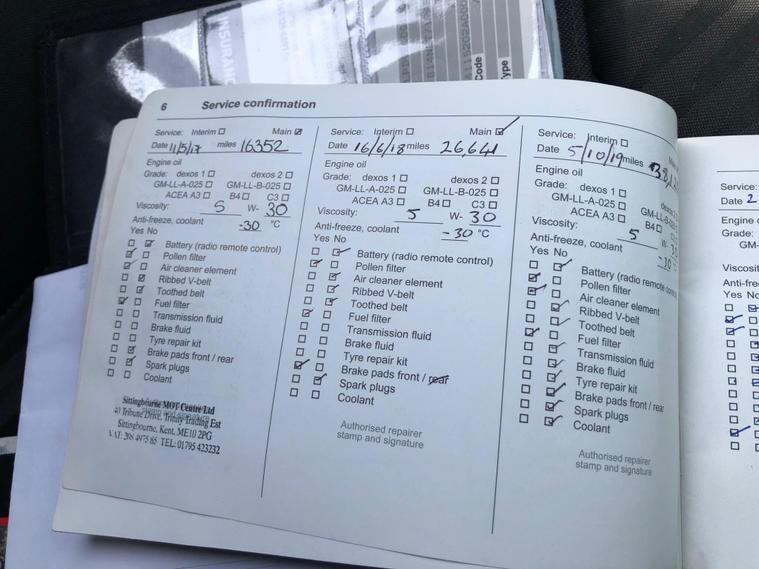 INSURAN
Code
Type
6 Service confirmation
Service: Interim ☐ Main ☑
Date 11/5/17 miles 16352
Engine oil
Grade: dexos 1 ☐ dexos 2 ☐
GM-LL-A-025 ☐ GM-LL-B-025 ☐
ACEA A3 ☐ B4 ☐ C3 ☐
Viscosity: 5 W- 30
Anti-freeze, coolant -30 °C
Yes No
Battery (radio remote control)
Pollen filter
Air cleaner element
Ribbed V-belt
Toothed belt
Fuel filter
Transmission fluid
Brake fluid
Tyre repair kit
Brake pads front / rear
Spark plugs
Coolant
Sittingbourne MOT Centre Ltd
40 Tribune Drive, Trinity Trading Est
Sittingbourne, Kent, ME10 2PG
VAT: 208 4975 85 TEL: 01795 423232
Service: Interim ☐ Main ☑
Date 16/6/18 miles 26,641
Engine oil
Grade: dexos 1 ☐ dexos 2 ☐
GM-LL-A-025 ☐ GM-LL-B-025 ☐
ACEA A3 ☐ B4 ☐ C3 ☐
Viscosity: 5 W- 30
Anti-freeze, coolant -30 °C
Yes No
Battery (radio remote control)
Pollen filter
Air cleaner element
Ribbed V-belt
Toothed belt
Fuel filter
Transmission fluid
Brake fluid
Tyre repair kit
Brake pads front / rear
Spark plugs
Coolant
Authorised repairer
stamp and signature
Service: Interim ☐
Date 5/10/19 miles
Engine oil
Grade: dexos 1 ☐
GM-LL-A-025 ☐ GM-LL-B
ACEA A3 ☐ B4 ☐
Viscosity: 5 W-
Anti-freeze, coolant
Yes No
Battery (radio remote
Pollen filter
Air cleaner element
Ribbed V-belt
Toothed belt
Fuel filter
Transmission fluid
Brake fluid
Tyre repair kit
Brake pads front / rear
Spark plugs
Coolant
Authorised repairer
stamp and signature
Service:
Date 2
Engine
Grade:
GM-
Viscosit
Anti-fre
Yes No